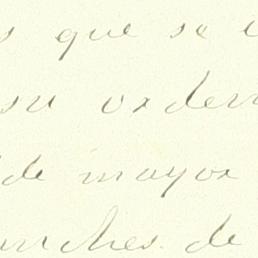 s que se
su orden
de mayor
unches. de